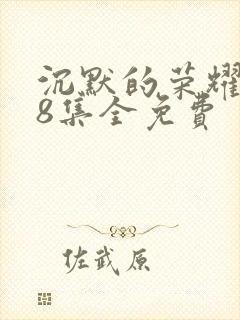 沉默的荣耀
8集全免费
佐武原